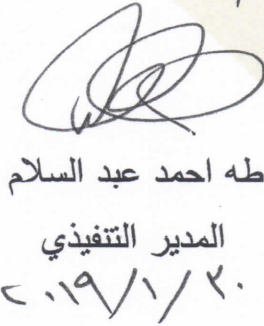 طه احمد عبد السلام
المدير التنفيذي
٢٠١٩/١/٣٠